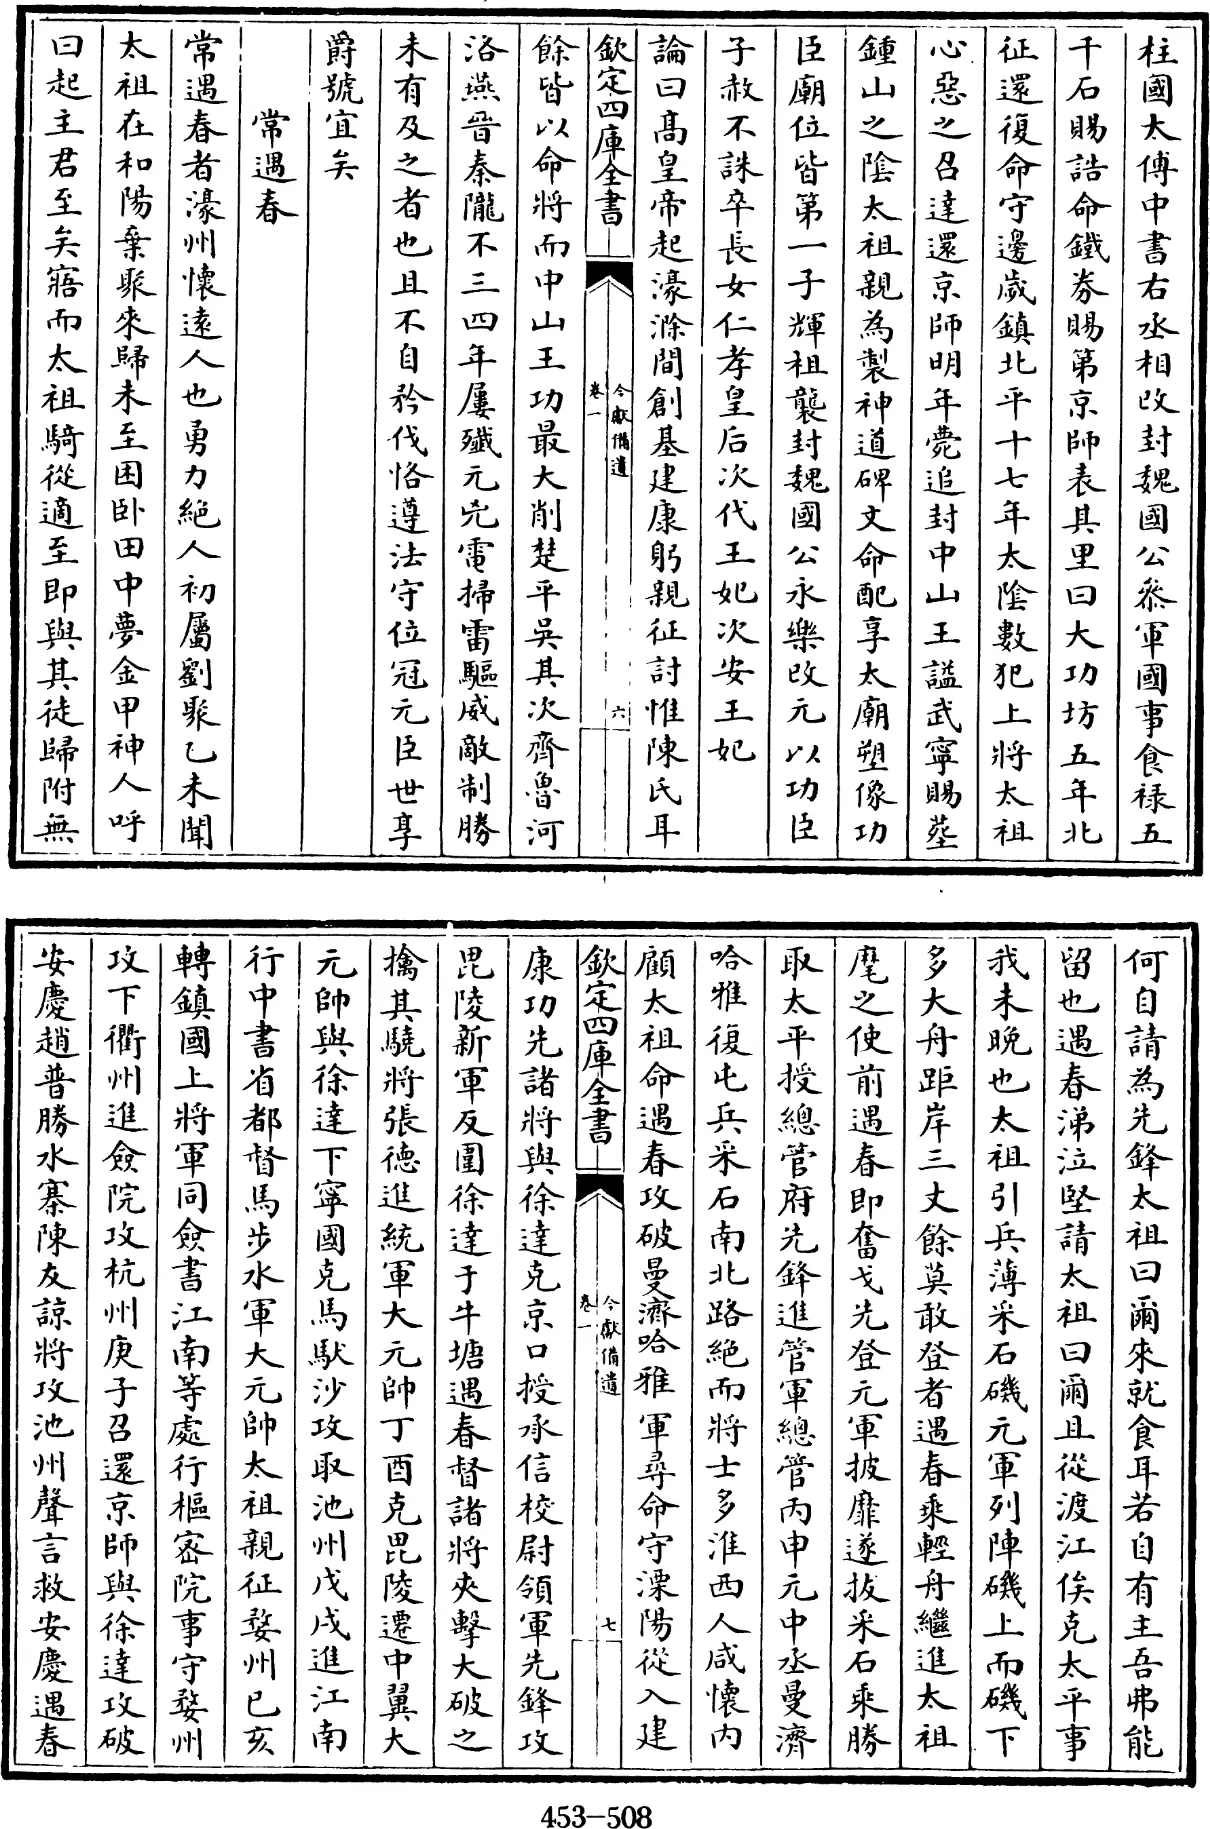 柱國太傅中書右丞相改封魏國公叅軍國事食祿五
千石賜誥命鐵券賜第京師表其里曰大功坊五年北
征還復命守邊歲鎮北平十七年太陰數犯上將太祖
心惡之召達還京師明年薨追封中山王謚武寧賜塟
鍾山之陰太祖親為製神道碑文命配享太廟塑像功
臣廟位皆第一子輝祖襲封魏國公永樂改元以功臣
子赦不誅卒長女仁孝皇后次代王妃次安王妃
論曰髙皇帝起濠滁間創基建康躬親征討惟陳氏耳
欽定四庫全書
今獻備遺
卷一
六
餘皆以命將而中山王功最大削楚平吳其次齊魯河
洛燕晉秦隴不三四年屢殲元兇電掃雷驅威敵制勝
未有及之者也且不自矜伐恪遵法守位冠元臣世享
爵號宜矣
常遇春
常遇春者濠州懷逺人也勇力絕人初屬劉聚乙未聞
太祖在和陽棄聚來歸未至困卧田中夢金甲神人呼
曰起主君至矣寤而太祖騎從適至即與其徒歸附無
何自請為先鋒太祖曰爾來就食耳若自有主吾弗能
留也遇春涕泣堅請太祖曰爾且從渡江俟克太平事
我未晚也太祖引兵薄采石磯元軍列陣磯上而磯下
多大舟距岸三丈餘莫敢登者遇春乘輕舟繼進太祖
麾之使前遇春即奮戈先登元軍披靡遂拔采石乘勝
取太平授總管府先鋒進管軍總管丙申元中丞曼濟
哈雅復屯兵采石南北路絕而將士多淮西人咸懷內
顧太祖命遇春攻破曼濟哈雅軍尋命守溧陽從入建
欽定四庫全書
今獻備遺
卷一
七
康功先諸將與徐達克京口授承信校尉領軍先鋒攻
毘陵新軍反圍徐達于牛塘遇春督諸將夾擊大破之
擒其驍將張德進統軍大元帥丁酉克毘陵遷中翼大
元帥與徐達下寧國克馬馱沙攻取池州戊戌進江南
行中書省都督馬步水軍大元帥太祖親征婺州已亥
轉鎮國上將軍同僉書江南等處行樞宻院事守婺州
攻下衢州進僉院攻杭州庚子召還京師與徐達攻破
安慶趙普勝水寨陳友諒將攻池州聲言救安慶遇春
453-508